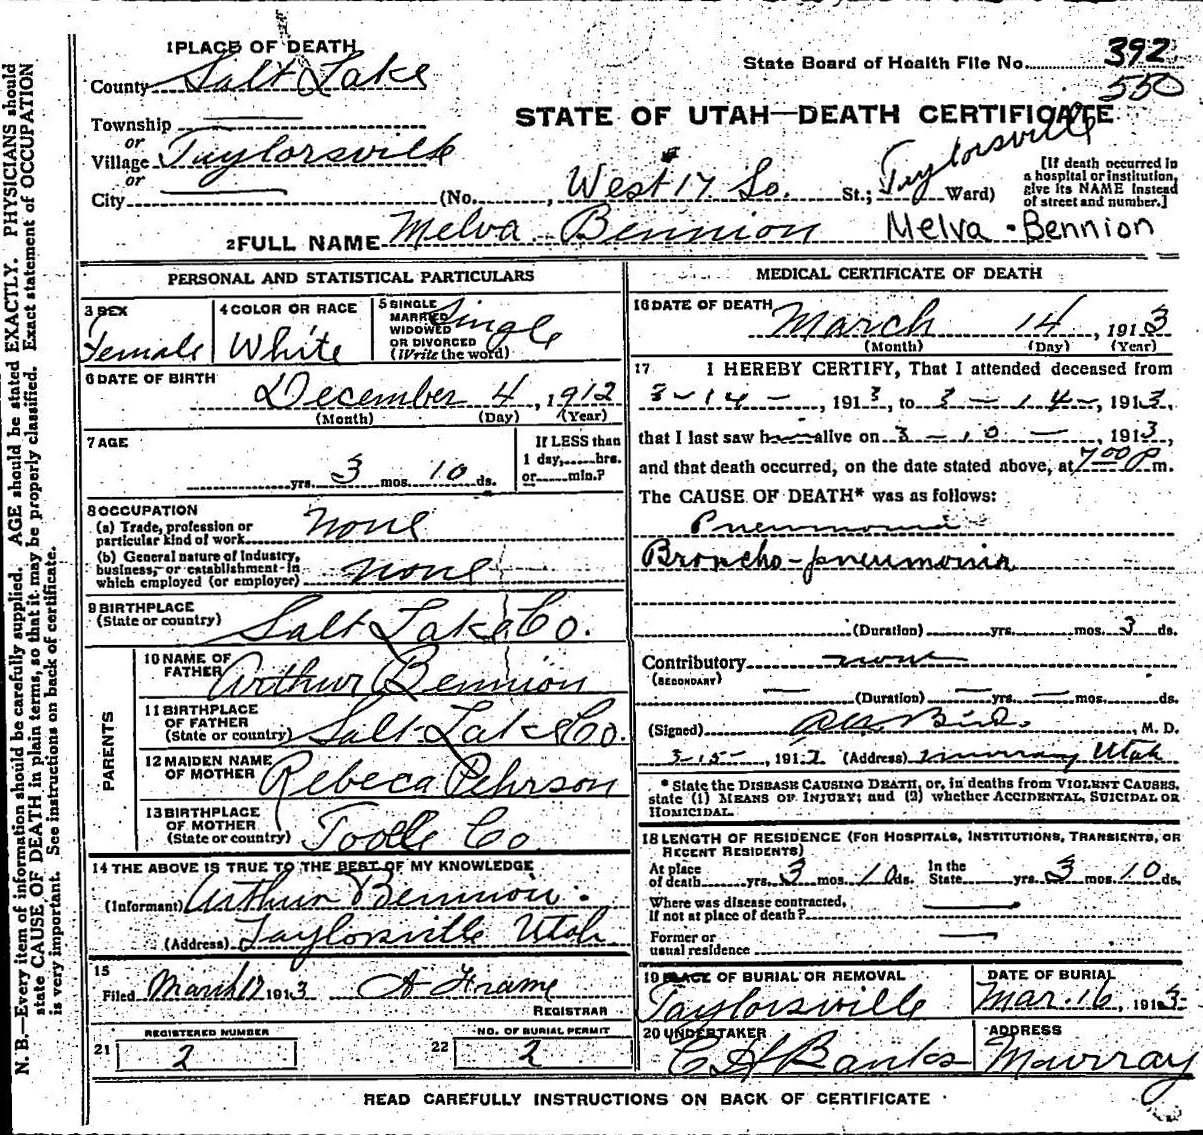 1 PLACE OF DEATH
State Board of Health File No. 392
550
County Salt Lake
STATE OF UTAH—DEATH CERTIFICATE
Township
or
Village Taylorsville
or
City (No. , West 17 So. St.; Taylorsville Ward)
[If death occurred in a hospital or institution, give its NAME instead of street and number.]
2 FULL NAME Melva Bennion Melva Bennion
PERSONAL AND STATISTICAL PARTICULARS
3 SEX Female
4 COLOR OR RACE White
5 SINGLE MARRIED WIDOWED OR DIVORCED (Write the word) Single
6 DATE OF BIRTH
December 4, 1912
(Month) (Day) (Year)
7 AGE
yrs. 3 mos. 10 ds.
If LESS than 1 day, hrs. or min.?
8 OCCUPATION
(a) Trade, profession or particular kind of work none
(b) General nature of industry, business, or establishment in which employed (or employer) none
9 BIRTHPLACE
(State or country) Salt Lake Co.
PARENTS
10 NAME OF FATHER Arthur Bennion
11 BIRTHPLACE OF FATHER
(State or country) Salt Lake Co.
12 MAIDEN NAME OF MOTHER Rebeca Pehrson
13 BIRTHPLACE OF MOTHER
(State or country) Tooele Co
14 THE ABOVE IS TRUE TO THE BEST OF MY KNOWLEDGE
(Informant) Arthur Bennion.
(Address) Taylorsville Utah
15
Filed March 17 1913 A Frame
REGISTRAR
REGISTERED NUMBER
21 2
NO. OF BURIAL PERMIT
22 2
MEDICAL CERTIFICATE OF DEATH
16 DATE OF DEATH
March 14, 1913
(Month) (Day) (Year)
17 I HEREBY CERTIFY, That I attended deceased from
3-14-, 1913, to 3-14-, 1913,
that I last saw h alive on 3-10-, 1913,
and that death occurred, on the date stated above, at 7:00 P m.
The CAUSE OF DEATH* was as follows:
Pneumonia
Broncho-pneumonia
(Duration) yrs. mos. 3 ds.
Contributory none
(SECONDARY)
(Duration) — yrs. — mos. ds.
(Signed) Bird. , M. D.
3-15-, 191 (Address) Murray Utah
* State the DISEASE CAUSING DEATH, or, in deaths from VIOLENT CAUSES, state (1) MEANS OF INJURY; and (2) whether ACCIDENTAL, SUICIDAL OR HOMICIDAL.
18 LENGTH OF RESIDENCE (FOR HOSPITALS, INSTITUTIONS, TRANSIENTS, OR RECENT RESIDENTS)
At place of death yrs. 3 mos. 10 ds. In the State yrs. 3 mos. 10 ds.
Where was disease contracted, if not at place of death?
Former or usual residence
19 PLACE OF BURIAL OR REMOVAL
Taylorsville
DATE OF BURIAL
Mar. 16, 1913
20 UNDERTAKER
C H Banks
ADDRESS
Murray
READ CAREFULLY INSTRUCTIONS ON BACK OF CERTIFICATE
N. B.—Every item of information should be carefully supplied. AGE should be stated EXACTLY. PHYSICIANS should
state CAUSE OF DEATH in plain terms, so that it may be properly classified. Exact statement of OCCUPATION
is very important. See instructions on back of certificate.